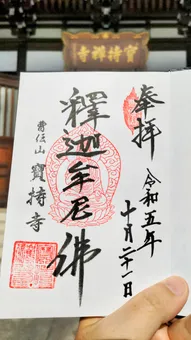 寶持禅寺
奉拝
令和五年
十月二十一日
釋迦牟尼佛
山 寶持寺